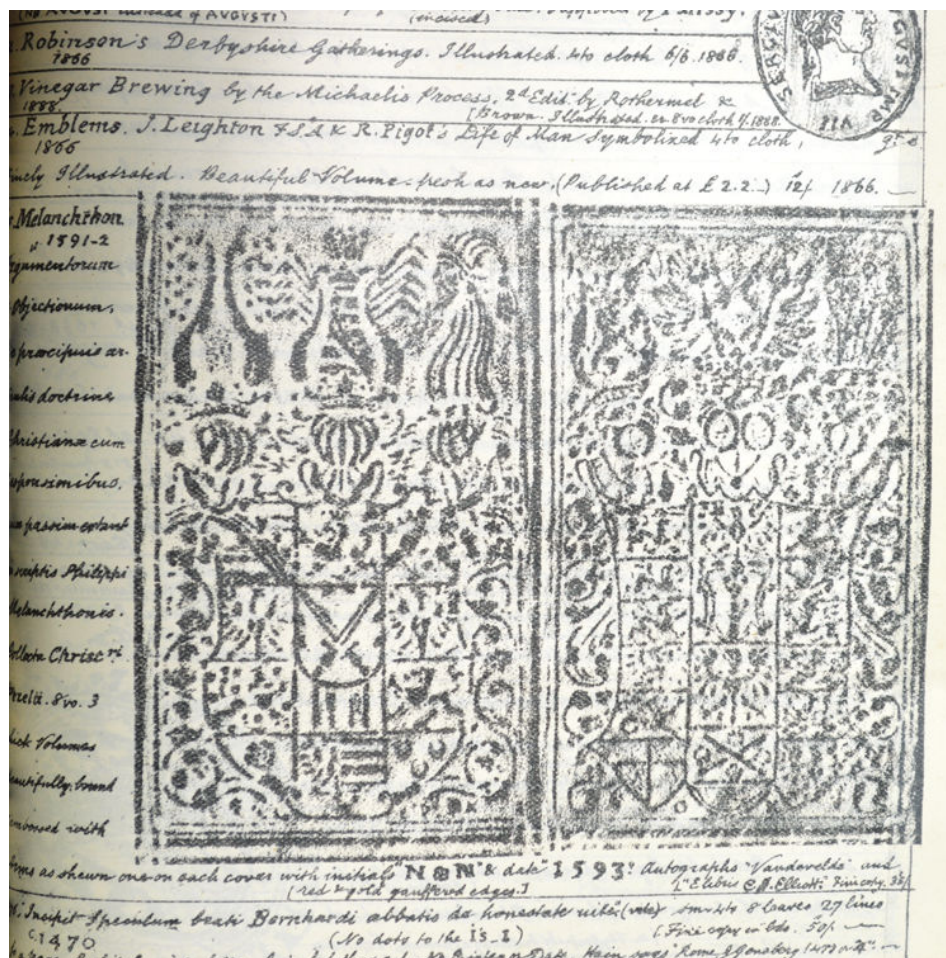 (NO AVGVST instead of AVGVSTI)
(incised)
by Palissy.
Robinson's Derbyshire Gatherings. Illustrated. 4to cloth 6/6. 1866
1866
Vinegar Brewing by the Michaelis Process, 2d Edit. by Rothermel &
1888.
[Brown. Illustrated. cr 8vo cloth 1888.
Emblems, J. Leighton F.S.A & R. Pigot's Life of Man Symbolized 4to cloth,
1866
Illustrated. Beautiful Volume. fresh as new, (Published at £2.2.) 12/ 1866.
SERGIVS
GVST IMP
VII
Melanchthon
1591-2
Argumentorum
Objectionum,
præcipuis ar-
doctrinæ
Christianæ cum
responsionibus,
passim extant
scriptis Philippi
Melanchthonis.
Collecta Christri
8vo. 3
thick Volumes
beautifully bound
embossed with
Arms as shewn one on each cover with initials "N B N & date "1593". Autographs "Vandavelde" and
(red & gold gauffered edges.]
["E libris C. J. Elliott." Fine copy. 35/
Incipit Speculum beati Bernhardi abbatis de honestate uite: (vite) sm 4to 8 leaves 27 lines
c.1470
(No dots to the i's_I)
(Fine copy in bds. 50/.